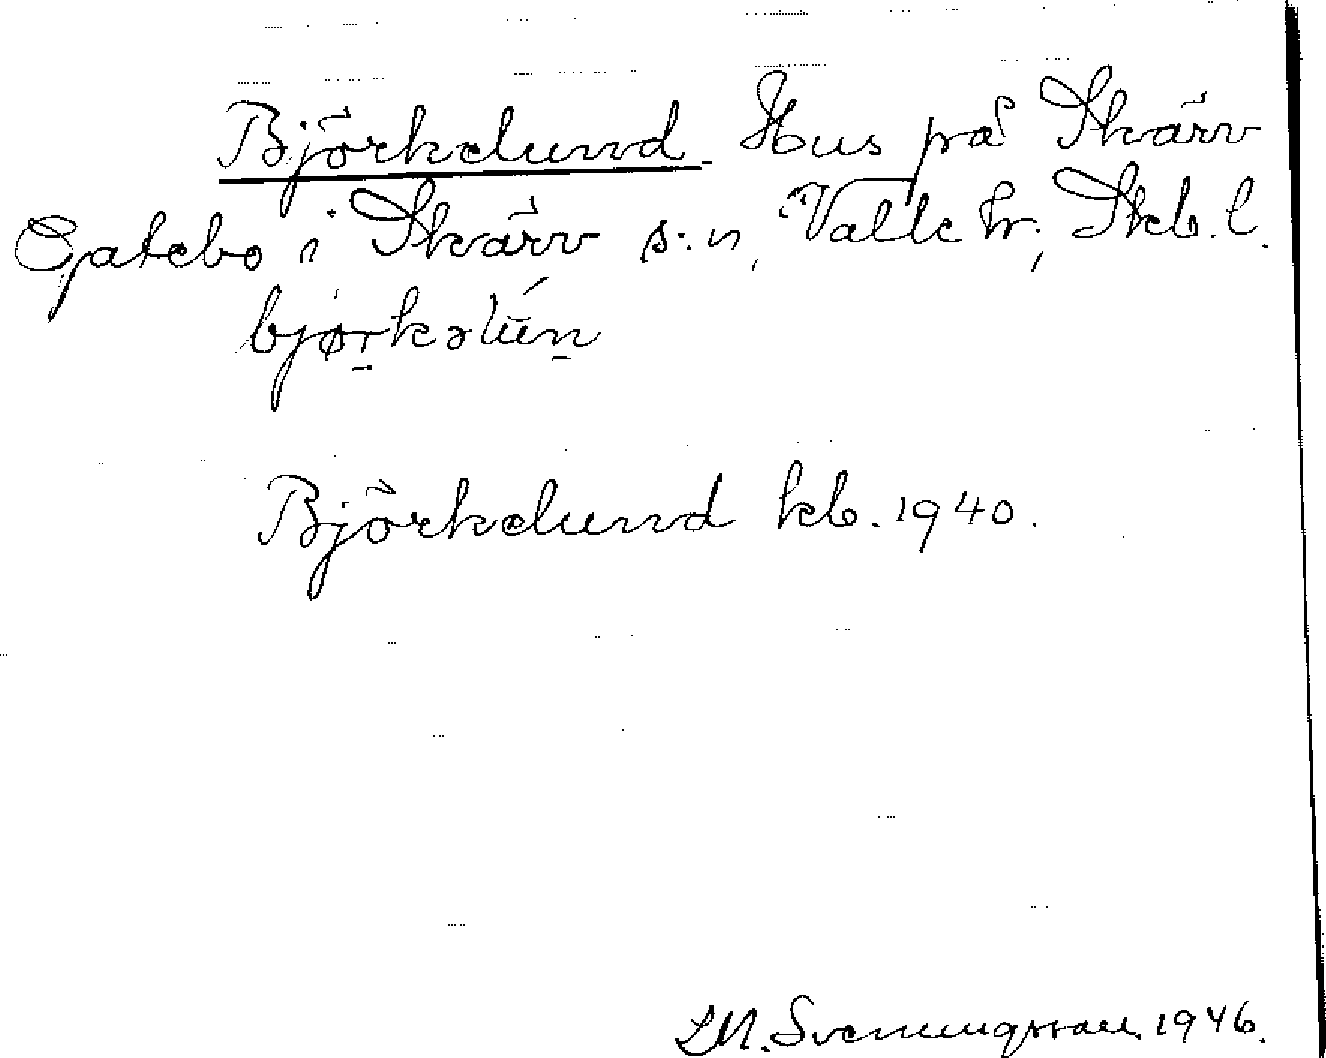 Björkelund. Hus på Skärv
Gatebo i Skärv s:n, Valle hr, Skb. l.
bjørkəlún
Björkelund kb. 1940.
L.M. Svenungsson 1946.